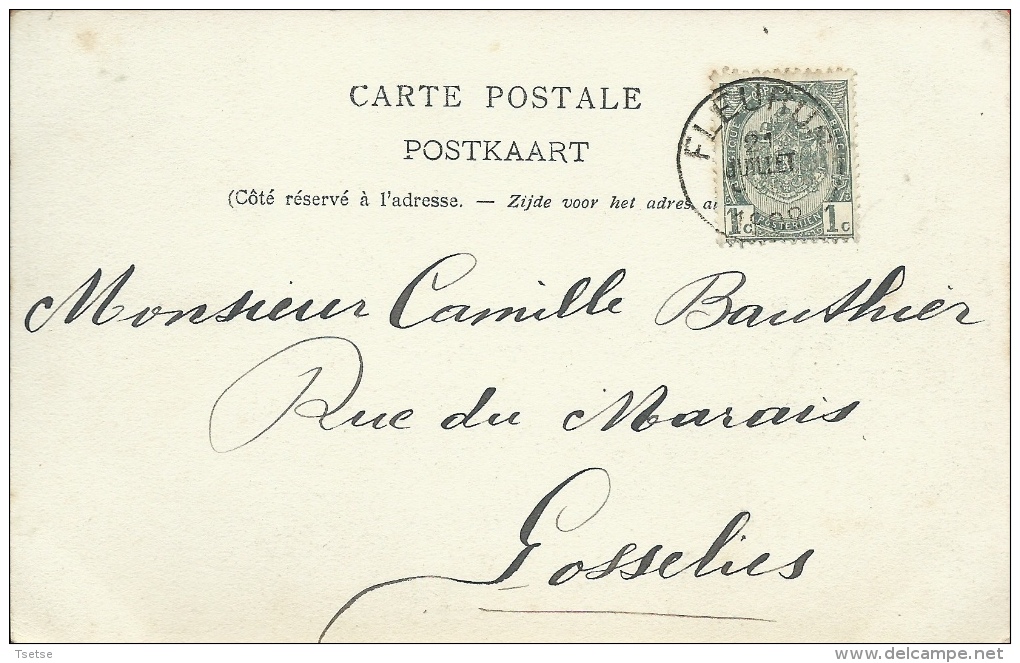 CARTE POSTALE
POSTKAART
(Côté réservé à l'adresse. — Zijde voor het adres
FLEURUS
JUILLET
1c 1c
POSTERIJEN
Monsieur Camille Bauthier
Rue du Marais
Gosselies
Tsetse
delcampe.net